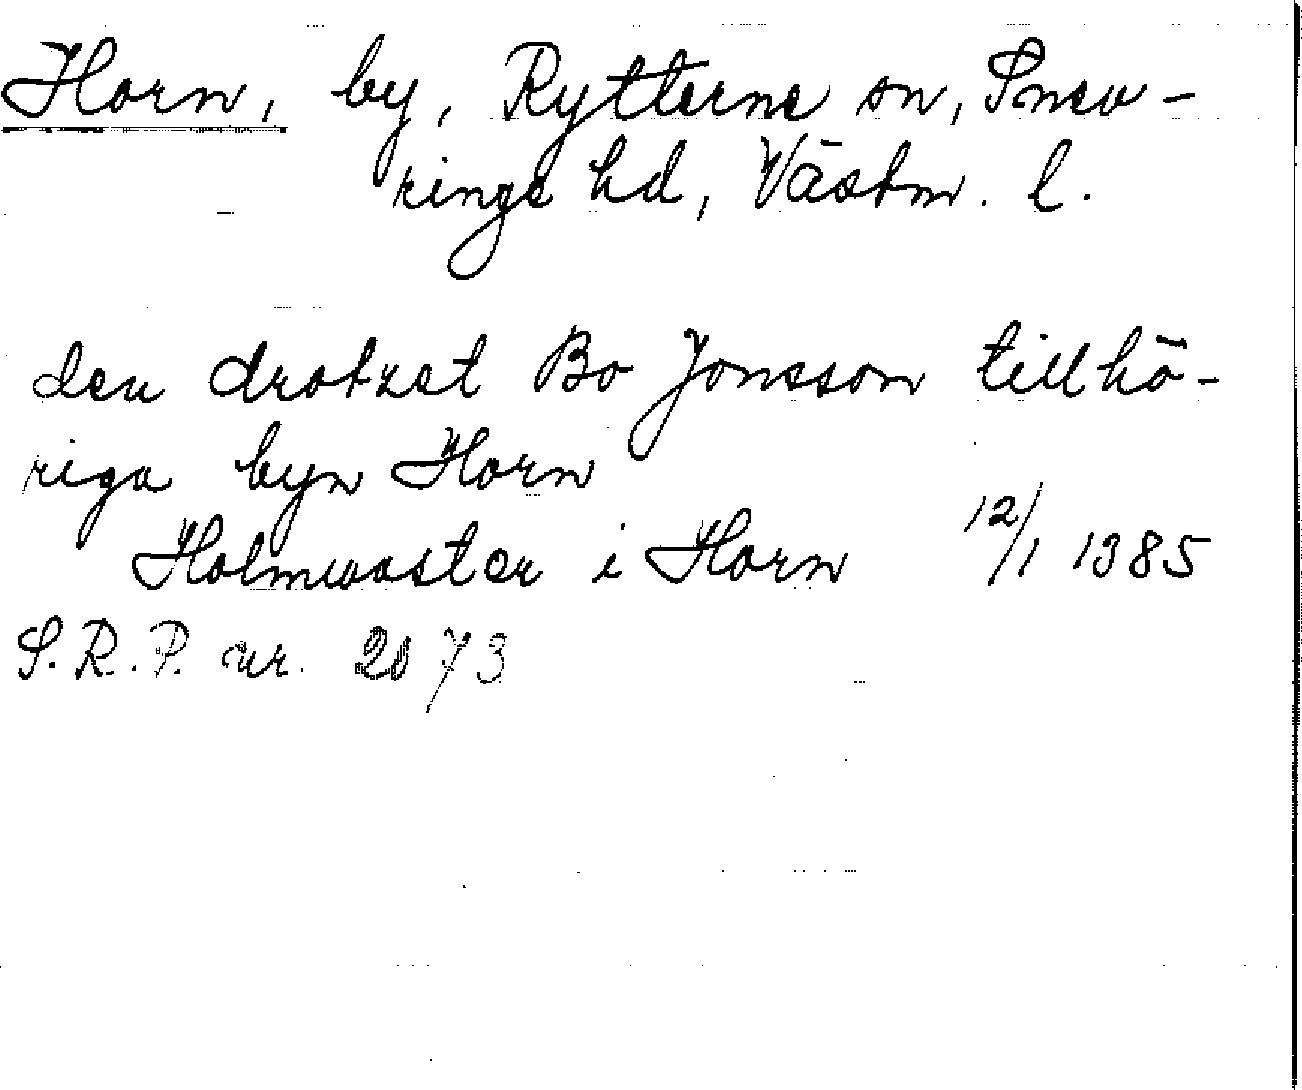 Horn, by, Rytterne sn, Snev-
rings hd, Västm. l.
den drotzet Bo Jonsson tillhö-
riga byn Horn
Holmwaster i Horn 12/1 1385
S.R.P. nr. 2073